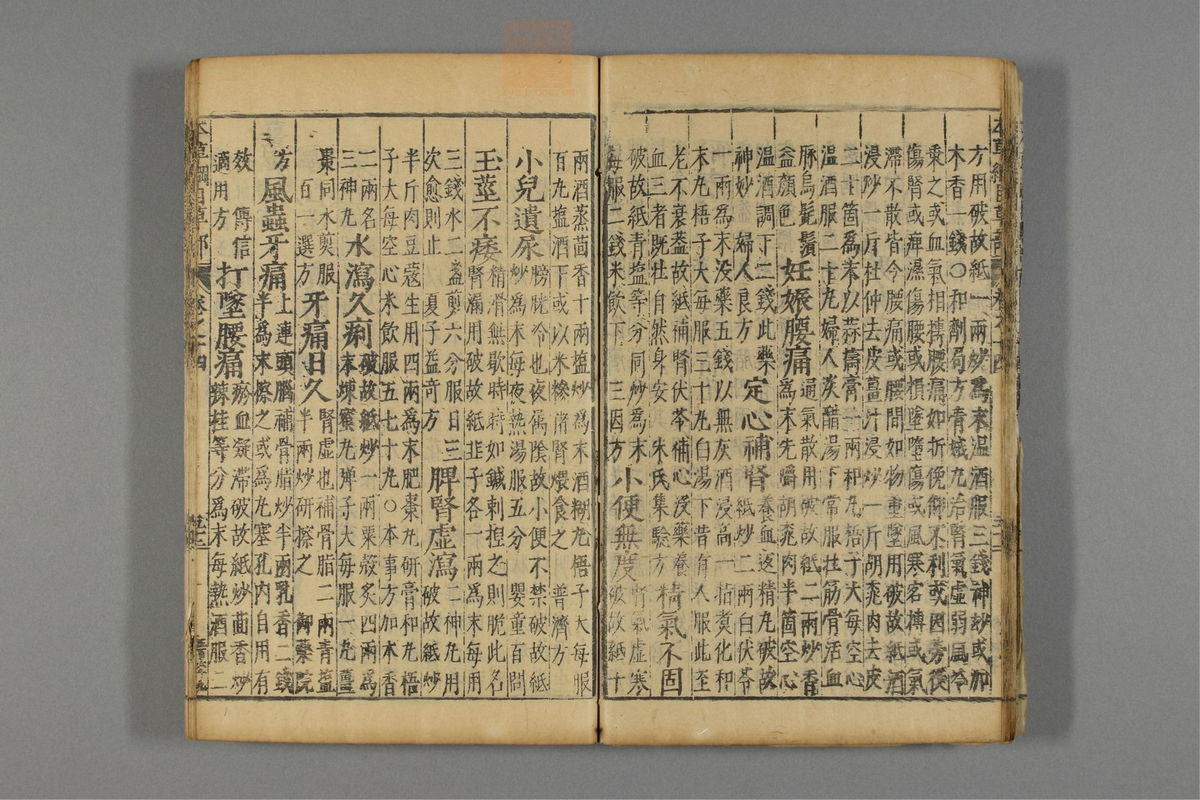 方用破故紙一兩炒為末温酒服三錢神妙或加
木香一錢○和劑局方青娥丸治腎氣虚弱風冷
乗之或血氣相摶腰痛如折俛仰不利或因勞役
傷腎或痺濕傷腰或損墜墮傷或風寒客摶或氣
滯不散皆令腰痛或腰間如物重墜用破故紙酒
浸炒一斤杜仲去皮薑汁浸炒一斤胡桃肉去皮
二十箇為末以蒜擣膏一兩和丸梧子大每空心
温酒服二十丸婦人淡醋湯下常服壯筋骨活血
脉烏髭鬚
益顔色 妊娠腰痛 通氣散用破故紙二兩炒香為末先嚼胡桃肉半箇空心
温酒調下二錢此藥
神妙婦人良方 定心補腎 養血返精丸破故紙炒二兩白伏苓
一兩為末没藥五錢以無灰酒浸高一指煑化和
末丸梧子大每服三十丸白湯下昔有人服此至
老不衰葢故紙補腎伏苓補心没藥養
血三者既壯自然身安 朱氏集驗方 精氣不固
破故紙青塩等分同炒為末
每服二錢米飲下 三因方 小便無度 腎氣虚寒破故紙十
兩酒蒸茴香十兩塩炒為末酒糊丸梧子大每服
百丸塩酒下或以米糝猪腎煨食之 普濟方
小兒遺尿 膀胱冷也夜屬陰故小便不禁破故紙炒為末每夜熱湯服五分 嬰童百問
玉莖不痿 精滑無歇時時如鍼刺捏之則脆此名腎漏用破故紙韭子各一兩為末每用
三錢水二盞煎六分服日三
次愈則止 夏子益奇方 脾腎虚瀉 二神丸用破故紙炒
半斤肉豆蔻生用四兩為末肥棗丸研膏和丸梧
子大每空心米飲服五七十丸○本事方加木香
二兩名
三神丸 水瀉久痢 破故紙炒一兩粟殼炙四兩為末煉蜜丸彈子大每服一丸薑
棗同水煎服
百一選方 牙痛日久 腎虚也補骨脂二兩青塩半兩炒研擦之 御藥院
方 風蟲牙痛 上連頭腦補骨脂炒半兩乳香二錢半為末擦之或為丸塞孔内自用有
效 傳信
適用方 打墜腰痛 瘀血凝滯破故紙炒茴香炒辣桂等分為末每熱酒服二